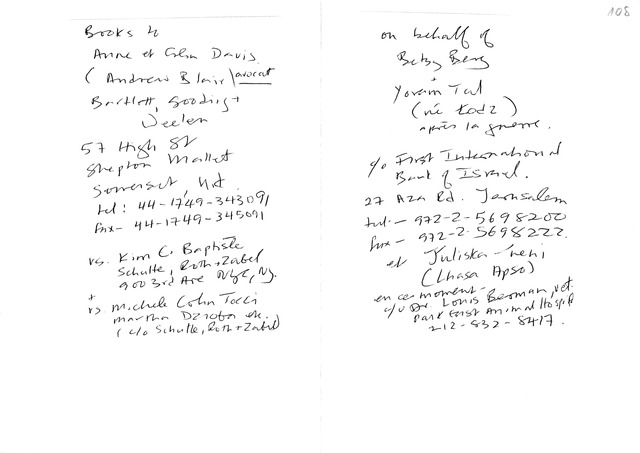 Books to
Anne et Colin Davis
(Andrew Blair) avocat
Bartlett, Gooding +
Weelen
57 High St
Shepton Mallet
Somerset,
tel: 44-1749-343091
fax- 44-1749-345091
vs. Kim C. Baptiste
Schulte, Roth + Zabel
900 3rd Ave NYC, NY.
+
vs. Michele Cohn Tocci
Martha Dzioba etc.
(c/o Schulte, Roth + Zabel)
108
on behalf of
Betsy Berg
+
Yoram Tal
(né Łodz)
après la guerre.
c/o First International
Bank of Israel.
27 Aza Rd. Jerusalem
tel.- 972-2-5698200
fax- 972-2-5698222.
et Juliska-neni
(Lhasa Apso)
en ce moment-
c/o Dr. Louis Berman, vet.
Park East Animal Hospit
212-832-8417.